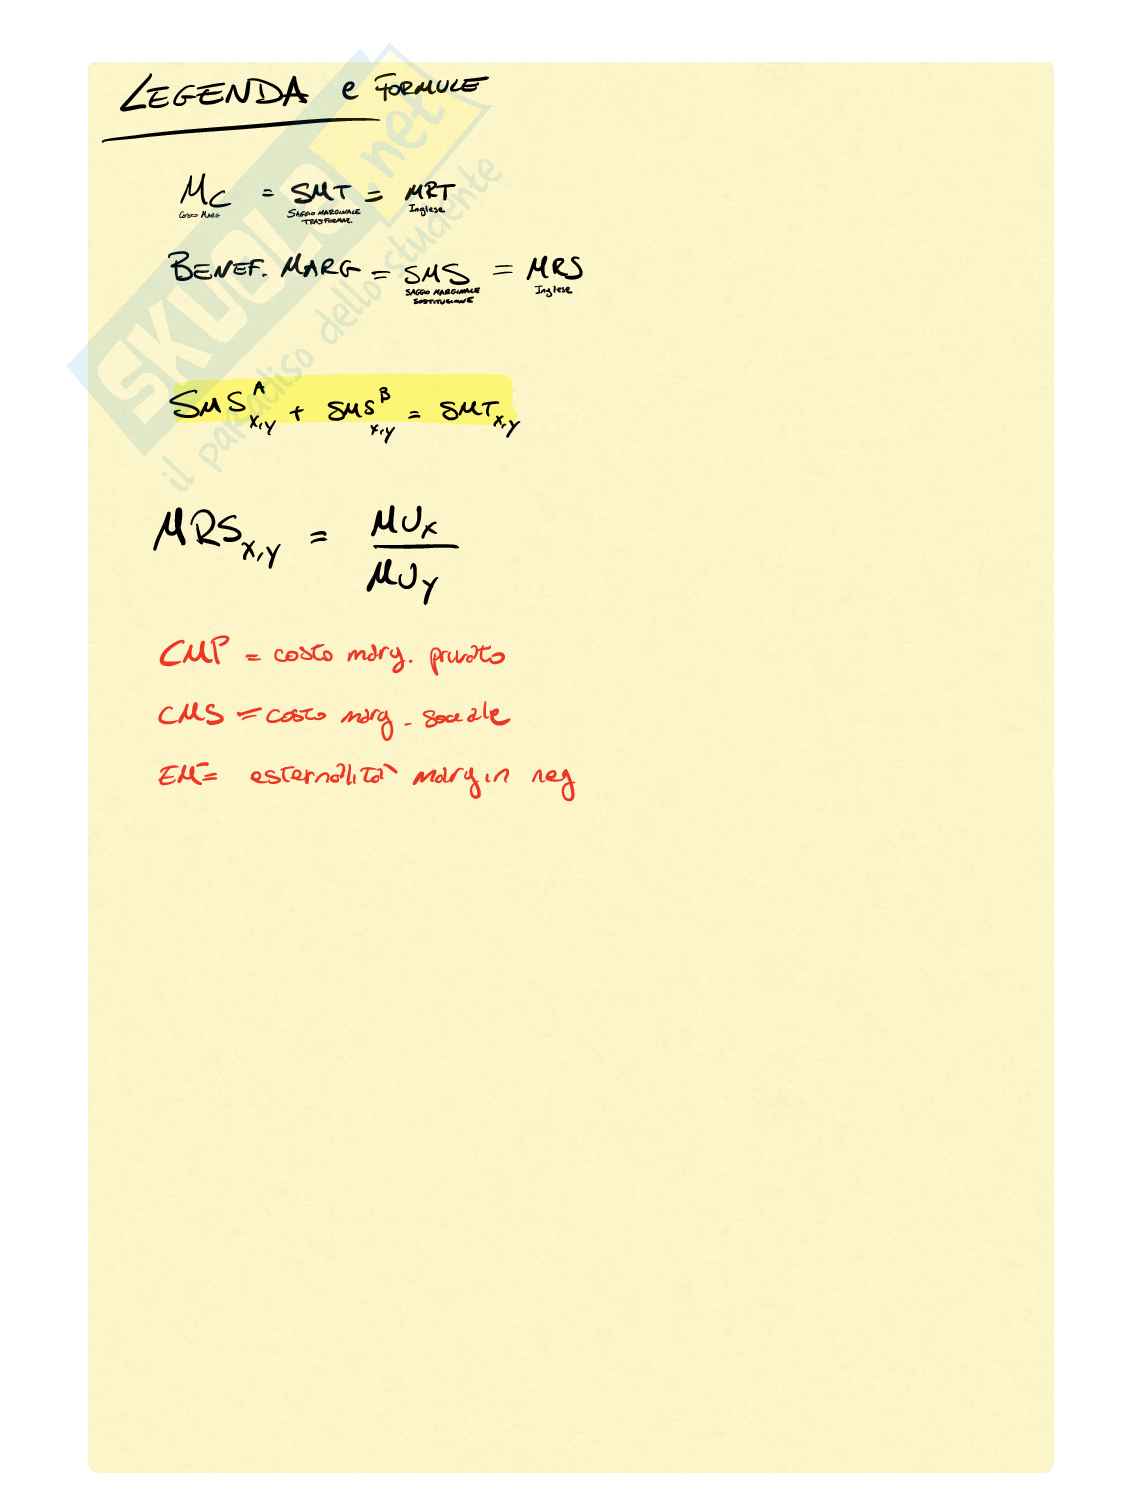 LEGENDA e FORMULE
MC = SMT = MRT
COSTO MARG SAGGIO MARGINALE TRASFORMAZ. Inglese
BENEF. MARG = SMS = MRS
SAGGIO MARGINALE SOSTITUZIONE Inglese
SMS^A_x,y + SMS^B_x,y = SMT_x,y
MRS_x,y = MU_x / MU_y
CMP = costo marg. privato
CMS = costo marg. sociale
EM = esternalità margin neg
SKUOLA.net
il paradiso dello studente